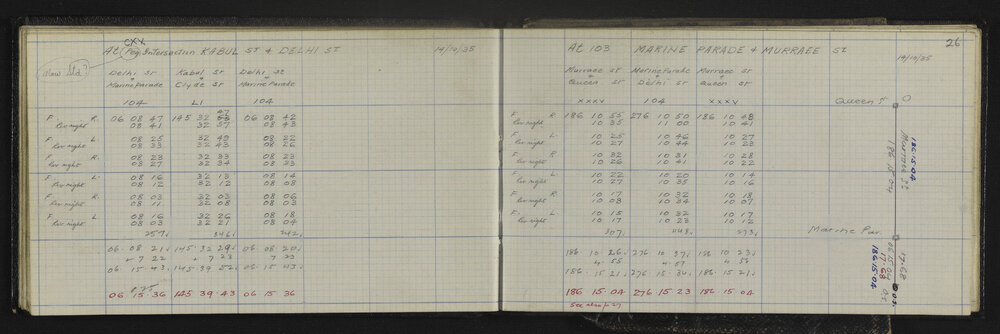 CXV
At Peg Intersection KABUL ST & DELHI ST 19/10/35
New Std?
Delhi St Kabul St Delhi St
Marine Parade Clyde St Marine Parade
104 LI 104
F. R. 06 08 47 145 32 08 42
Rev right 08 41 32 57 08 43
F L. 08 25 32 49 08 22
Rev right 08 33 32 43 08 26
F R. 08 23 32 33 08 23
Rev right 08 27 32 34 08 23
F L. 08 16 32 13 08 14
Rev right 08 12 32 12 08 08
F R 08 03 32 03 08 06
Rev right 08 11 32 08 08 03
F L 08 16 32 26 08 18
Rev right 08 03 32 21 08 04
257. 346. 242.
06 . 08 21. 145 32 29. 06 08 20.
+ 7 22 + 7 23 7 23
06 . 15 43. 145 39 52. 06 15 43.
06 15 36 145 39 43 06 15 36
26
At 103 MARINE PARADE & MURRAEE St. 19/10/35
Murraee St Marine Parade Murraee St
Queen St Delhi St Queen St
XXXV 104 XXXV
F R. 186 10 55 276 10 50 186 10 48
Rev right 10 35 11 00 10 41
F L 10 25 10 46 10 27
Rev right 10 27 10 44 10 23
F R 10 32 10 31 10 28
Rev right 10 26 10 41 10 22
F L. 10 22 10 20 10 14
Rev right 10 27 10 35 10 16
F R 10 17 10 32 10 18
Rev right 10 08 10 34 10 07
F L. 10 15 10 32 10 17
Rev right 10 17 10 23 10 12
307. 273.
186 10 26. 276 10 37. 186 10 23.
4 55 4 57 4 58
186 . 15 21. 276 15 34. 186 15 21.
186 15 . 04 276 15 23 186 15 . 04
See also p 27
Queen St
Murraee St
186 15 04
186.15.04
Marine Par.
17.68
06 15 04
17.68
186.15.04